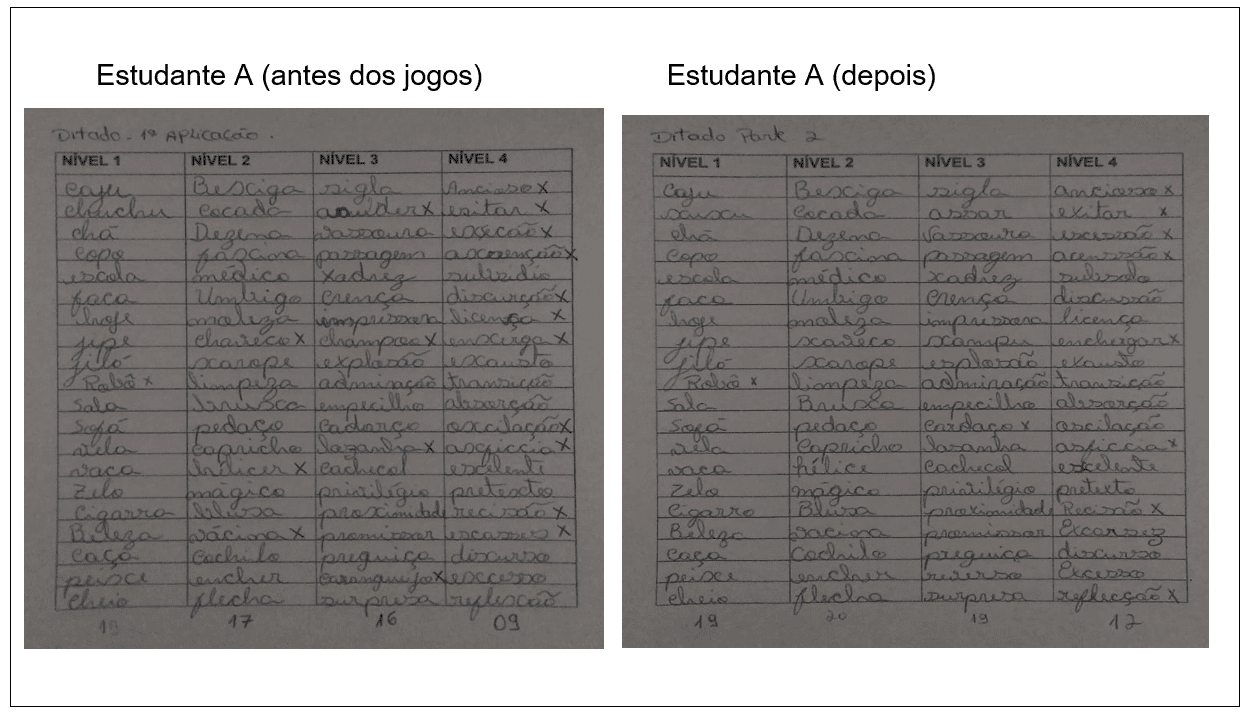 Estudante A (antes dos jogos)
Estudante A (depois)
Ditado - 1ª APLICAÇÃO.
NÍVEL 1 NÍVEL 2 NÍVEL 3 NÍVEL 4
Caju Besciga sigla Ancioso X
chuchu Cocada X exitar X
chá Dezena Vassoura X
Copo fáscina passagem X
escola médico xadrez
faca Umbigo Crença X
hoje moleza impressora licença X
jipe chaveco X X enxerga X
jiló xarope explosão
Robô x limpeza admiração transição
Sala brusca empecilho absorção
Sofá pedaço Cadarço oscilação X
vela capricho lazanha X asficcia X
vaca X Cachecol excelente
Zelo mágico privilégio pretexto
Cigarro blusa proximidade recisão X
Beleza vácina X promissor escasses X
Caça Cochilo preguiça discurso
peisce encher Caranguejo X excesso
Cheio flecha surpresa
18 17 16 09
Ditado Park 2
NÍVEL 1 NÍVEL 2 NÍVEL 3 NÍVEL 4
Caju Besciga sigla ancioso X
Cocada assar exitar x
chá Dezena Vassoura X
Copo fáscina passagem X
escola médico xadrez subsolo
faca Umbigo Crença discussão
hoje moleza impressora licença
jipe xaveco xampu enchergar X
jiló xarope explosão exausto
Robô x limpeza admiração transição
Sala Brusca empecilho absorção
Sofá pedaço Cardaço x oscilação
vela Capricho lasanha asficcia x
vaca hélice Cachecol excelente
Zelo mágico privilégio pretexto
Cigarro Blusa proximidade Recisão X
Beleza vacina promissor
Caça Cochilo preguiça discurso
peisce encher Excesso
Cheio flecha surpresa reflecção X
19 20 19 12